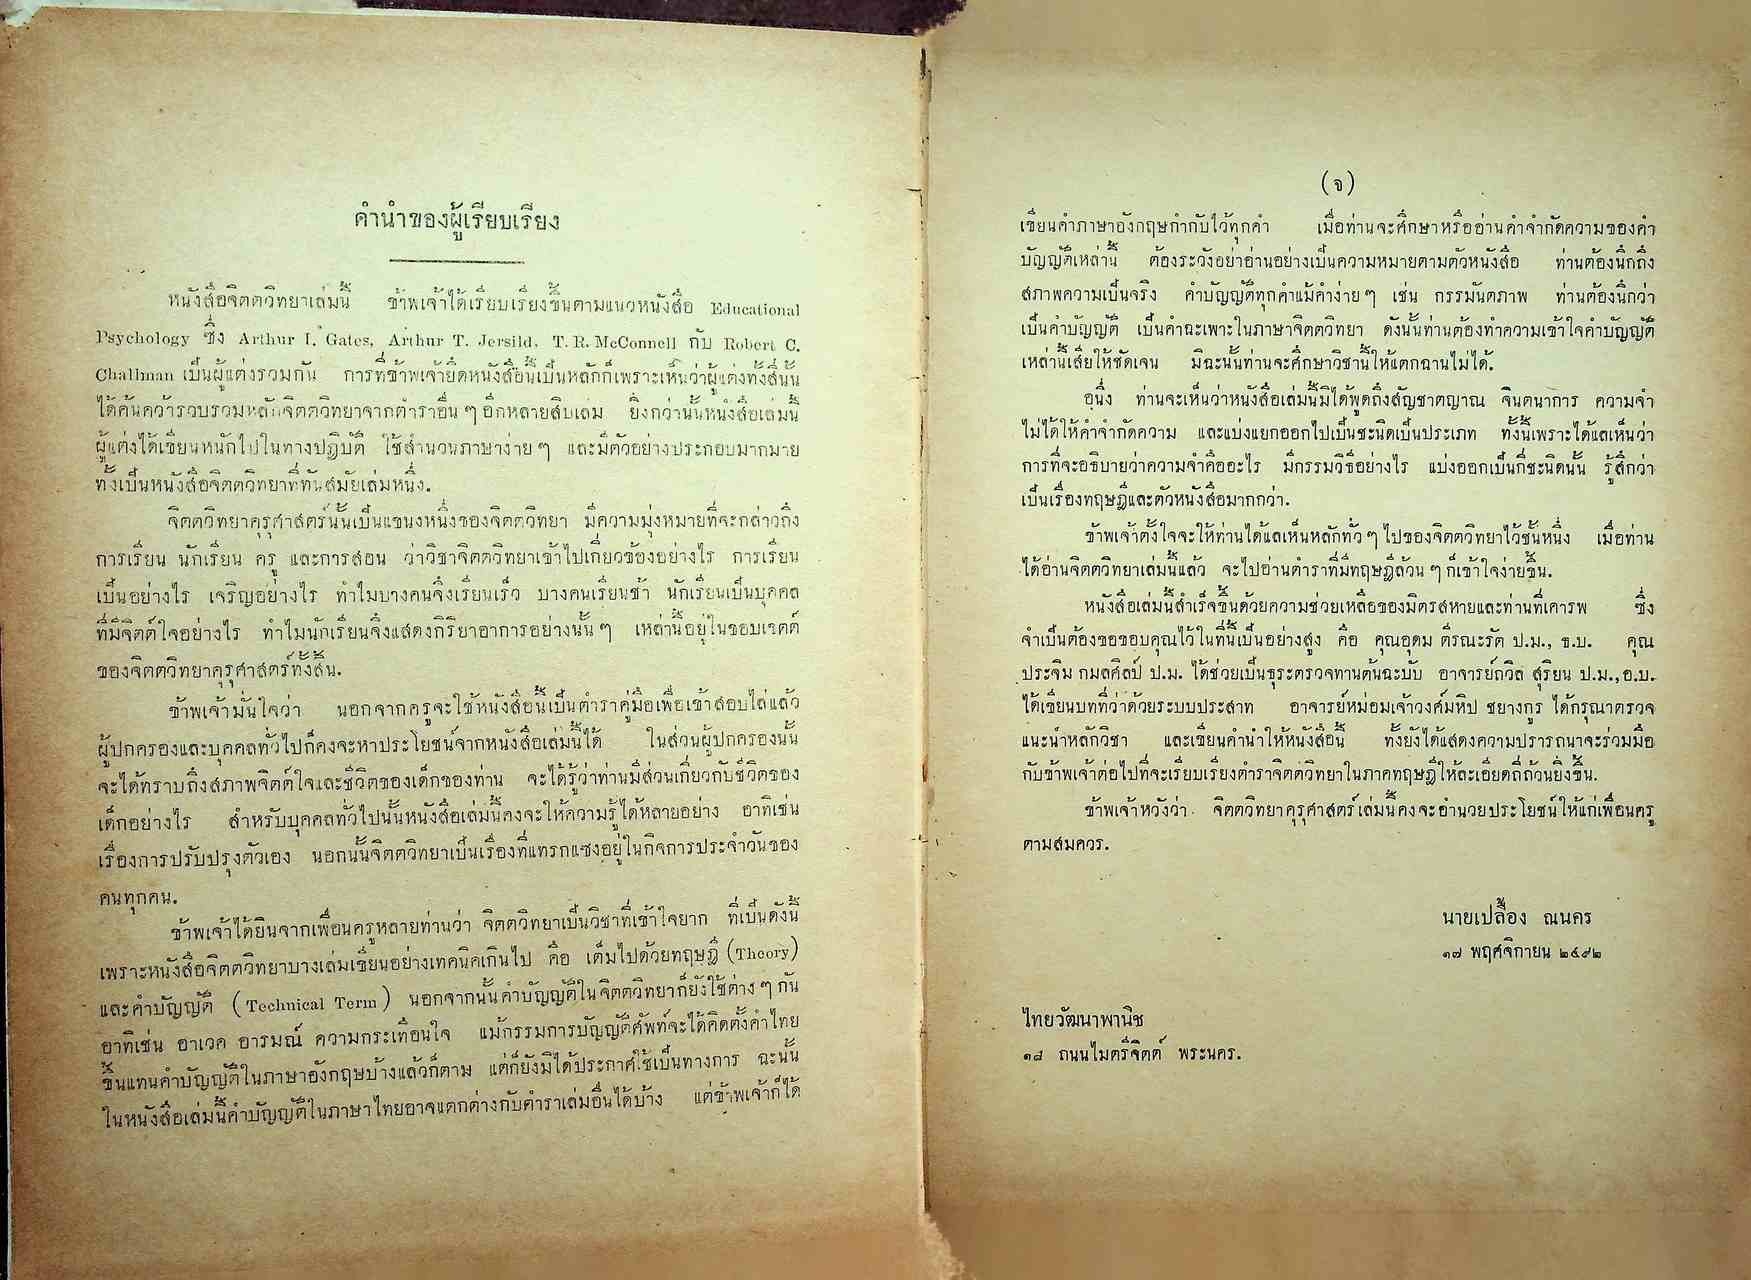 คำนำของผู้เรียบเรียง
หนังสือจิตตวิทยาเล่มนี้ ข้าพเจ้าได้เรียบเรียงขึ้นตามแนวหนังสือ Educational
Psychology ซึ่ง Arthur I. Gates, Arthur T. Jersild, T. R. McConnell กับ Robert C.
Challman เป็นผู้แต่งรวมกัน การที่ข้าพเจ้ายึดหนังสือนี้เป็นหลักก็เพราะเห็นว่าผู้แต่งทั้งสี่นั้น
ได้ค้นคว้ารวบรวมหลักจิตตวิทยาจากตำราอื่น ๆ อีกหลายสิบเล่ม ยิ่งกว่านั้นหนังสือเล่มนี้
ผู้แต่งได้เขียนหนักไปในทางปฏิบัติ ใช้สำนวนภาษาง่าย ๆ และมีตัวอย่างประกอบมากมาย
ทั้งเป็นหนังสือจิตตวิทยาที่ทันสมัยเล่มหนึ่ง.
จิตตวิทยาคุรุศาสตร์นั้นเป็นแขนงหนึ่งของจิตตวิทยา มีความมุ่งหมายที่จะกล่าวถึง
การเรียน นักเรียน ครู และการสอน ว่าวิชาจิตตวิทยาเข้าไปเกี่ยวข้องอย่างไร การเรียน
เป็นอย่างไร เจริญอย่างไร ทำไมบางคนจึงเรียนเร็ว บางคนเรียนช้า นักเรียนเป็นบุคคล
ที่มีจิตต์ใจอย่างไร ทำไมนักเรียนจึงแสดงกิริยาอาการอย่างนั้น ๆ เหล่านี้อยู่ในขอบเขตต์
ของจิตตวิทยาคุรุศาสตร์ทั้งสิ้น.
ข้าพเจ้ามั่นใจว่า นอกจากครูจะใช้หนังสือนี้เป็นตำราคู่มือเพื่อเข้าสอบไล่แล้ว
ผู้ปกครองและบุคคลทั่วไปก็คงจะหาประโยชน์จากหนังสือเล่มนี้ได้ ในส่วนผู้ปกครองนั้น
จะได้ทราบถึงสภาพจิตต์ใจและชีวิตของเด็กของท่าน จะได้รู้ว่าท่านมีส่วนเกี่ยวกับชีวิตของ
เด็กอย่างไร สำหรับบุคคลทั่วไปนั้นหนังสือเล่มนี้คงจะให้ความรู้ได้หลายอย่าง อาทิเช่น
เรื่องการปรับปรุงตัวเอง นอกนั้นจิตตวิทยาเป็นเรื่องที่แทรกแซงอยู่ในกิจการประจำวันของ
คนทุกคน.
ข้าพเจ้าได้ยินจากเพื่อนครูหลายท่านว่า จิตตวิทยาเป็นวิชาที่เข้าใจยาก ที่เป็นดังนี้
เพราะหนังสือจิตตวิทยาบางเล่มเขียนอย่างเทคนิคเกินไป คือ เต็มไปด้วยทฤษฎี (Theory)
และคำบัญญัติ (Technical Term) นอกจากนั้นคำบัญญัติในจิตตวิทยาก็ยังใช้ต่าง ๆ กัน
อาทิเช่น อาเวค อารมณ์ ความกระเทือนใจ แม้กรรมการบัญญัติศัพท์จะได้คิดตั้งคำไทย
ขึ้นแทนคำบัญญัติในภาษาอังกฤษบ้างแล้วก็ตาม แต่ก็ยังมิได้ประกาศใช้เป็นทางการ ฉะนั้น
ในหนังสือเล่มนี้คำบัญญัติในภาษาไทยอาจแตกต่างกับตำราเล่มอื่นได้บ้าง แต่ข้าพเจ้าก็ได้
(จ)
เขียนคำภาษาอังกฤษกำกับไว้ทุกคำ เมื่อท่านจะศึกษาหรืออ่านคำจำกัดความของคำ
บัญญัติเหล่านี้ ต้องระวังอย่าอ่านอย่างเป็นความหมายตามตัวหนังสือ ท่านต้องนึกถึง
สภาพความเป็นจริง คำบัญญัติทุกคำแม้คำง่าย ๆ เช่น กรรมันตภาพ ท่านต้องนึกว่า
เป็นคำบัญญัติ เป็นคำฉะเพาะในภาษาจิตตวิทยา ดังนั้นท่านต้องทำความเข้าใจคำบัญญัติ
เหล่านี้เสียให้ชัดเจน มิฉะนั้นท่านจะศึกษาวิชานี้ให้แตกฉานไม่ได้.
อนึ่ง ท่านจะเห็นว่าหนังสือเล่มนี้มิได้พูดถึงสัญชาตญาณ จินตนาการ ความจำ
ไม่ได้ให้คำจำกัดความ และแบ่งแยกออกไปเป็นชะนิดเป็นประเภท ทั้งนี้เพราะได้แลเห็นว่า
การที่จะอธิบายว่าความจำคืออะไร มีกรรมวิธีอย่างไร แบ่งออกเป็นกี่ชะนิดนั้น รู้สึกว่า
เป็นเรื่องทฤษฎีและตัวหนังสือมากกว่า.
ข้าพเจ้าตั้งใจจะให้ท่านได้แลเห็นหลักทั่ว ๆ ไปของจิตตวิทยาไว้ชั้นหนึ่ง เมื่อท่าน
ได้อ่านจิตตวิทยาเล่มนี้แล้ว จะไปอ่านตำราที่มีทฤษฎีล้วน ๆ ก็เข้าใจง่ายขึ้น.
หนังสือเล่มนี้สำเร็จขึ้นด้วยความช่วยเหลือของมิตรสหายและท่านที่เคารพ ซึ่ง
จำเป็นต้องขอขอบคุณไว้ในที่นี้เป็นอย่างสูง คือ คุณอุดม ตีรณะรัต ป.ม., ธ.บ. คุณ
ประจิม กมลศิลป์ ป.ม. ได้ช่วยเป็นธุระตรวจทานต้นฉะบับ อาจารย์ถวิล สุริยน ป.ม., อ.บ.
ได้เขียนบทที่ว่าด้วยระบบประสาท อาจารย์หม่อมเจ้าวงศ์มหิป ชยางกูร ได้กรุณาตรวจ
แนะนำหลักวิชา และเขียนคำนำให้หนังสือนี้ ทั้งยังได้แสดงความปรารถนาจะร่วมมือ
กับข้าพเจ้าต่อไปที่จะเรียบเรียงตำราจิตตวิทยาในภาคทฤษฎีให้ละเอียดถี่ถ้วนยิ่งขึ้น.
ข้าพเจ้าหวังว่า จิตตวิทยาคุรุศาสตร์เล่มนี้คงจะอำนวยประโยชน์ให้แก่เพื่อนครู
ตามสมควร.
นายเปลื้อง ณนคร
๑๗ พฤศจิกายน ๒๔๙๒
ไทยวัฒนาพานิช
๑๘ ถนนไมตรีจิตต์ พระนคร.